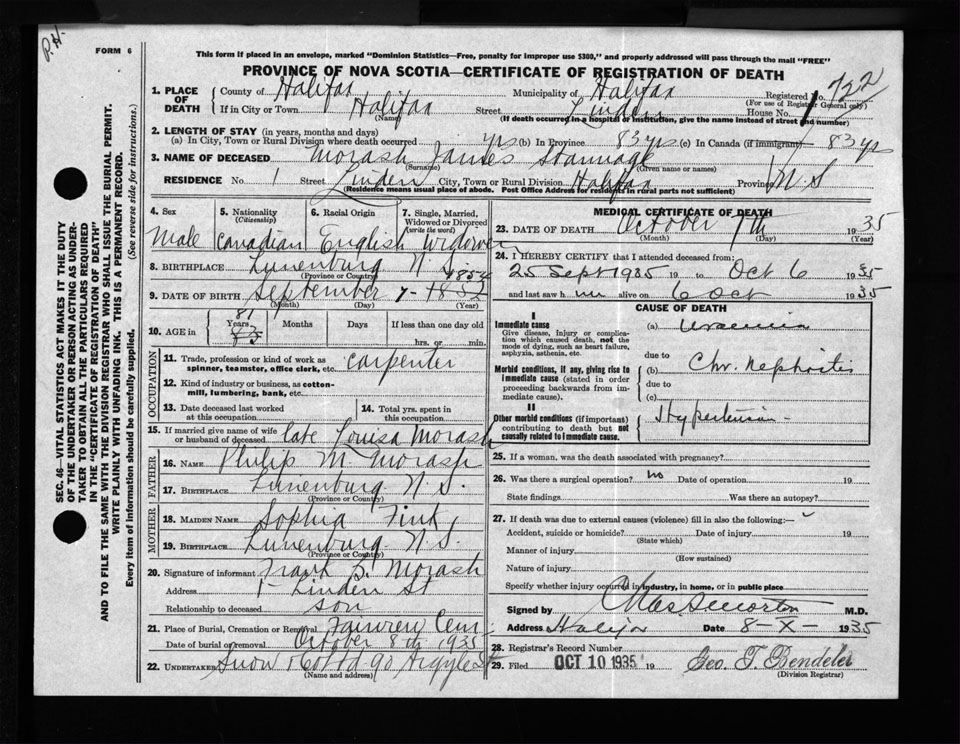 P.H.
FORM 6
This form if placed in an envelope, marked "Dominion Statistics—Free, penalty for improper use $300," and properly addressed will pass through the mail "FREE"
PROVINCE OF NOVA SCOTIA—CERTIFICATE OF REGISTRATION OF DEATH
1. PLACE OF DEATH County of Halifax Municipality of Halifax Registered No. 722
(For use of Registrar General only)
If in City or Town Halifax Street Linden House No. 1
(Name) (If death occurred in a hospital or institution, give the name instead of street and number)
2. LENGTH OF STAY (in years, months and days)
(a) In City, Town or Rural Division where death occurred yrs (b) In Province 83 yrs (c) In Canada (if immigrant) 83 yrs
3. NAME OF DECEASED Morash James
(Surname) (Given name or names)
RESIDENCE No. 1 Street Linden City, Town or Rural Division Halifax Province N.S
(Residence means usual place of abode. Post Office Address for residents in rural parts not sufficient)
4. Sex 5. Nationality (Citizenship) 6. Racial Origin 7. Single, Married, Widowed or Divorced (write the word)
Male Canadian English Widower
8. BIRTHPLACE Lunenburg N.S.
(Province or Country)
1854
9. DATE OF BIRTH September 7 - 1852
(Month) (Day) (Year)
81
10. AGE in Years 83 Months Days If less than one day old
hrs. or min.
OCCUPATION
11. Trade, profession or kind of work as spinner, teamster, office clerk, etc. Carpenter
12. Kind of industry or business, as cotton-mill, lumbering, bank, etc.
13. Date deceased last worked at this occupation 14. Total yrs. spent in this occupation
15. If married give name of wife or husband of deceased late Louisa Morash
FATHER
16. NAME Philip M. Morash
17. BIRTHPLACE Lunenburg N.S.
(Province or Country)
MOTHER
18. MAIDEN NAME Sophia Fink
19. BIRTHPLACE Lunenburg N.S.
(Province or Country)
20. Signature of informant Frank S. Morash
Address 1 Linden St
Relationship to deceased son
21. Place of Burial, Cremation or Removal Fairview Cem.
Date of burial or removal October 8th 1935
22. UNDERTAKER Snow & Co Ltd 90 Argyle St
(Name and address)
MEDICAL CERTIFICATE OF DEATH
23. DATE OF DEATH October 7th 1935
(Month) (Day) (Year)
24. I HEREBY CERTIFY that I attended deceased from:
25 Sept 1935 19 to Oct 6 1935
and last saw him alive on 6 Oct 1935
CAUSE OF DEATH
I
Immediate cause
Give disease, injury or complication which caused death, not the mode of dying, such as heart failure, asphyxia, asthenia, etc.
(a) Uraemia
due to
Morbid conditions, if any, giving rise to immediate cause (stated in order proceeding backwards from immediate cause).
(b) Chr. Nephritis
due to
(c)
II
Other morbid conditions (if important) contributing to death but not causally related to immediate cause. Hypertension
25. If a woman, was the death associated with pregnancy?
26. Was there a surgical operation? no Date of operation 19
State findings Was there an autopsy?
27. If death was due to external causes (violence) fill in also the following:—
Accident, suicide or homicide? Date of injury 19
(State which)
Manner of injury
(How sustained)
Nature of injury
Specify whether injury occurred in industry, in home, or in public place
Signed by M.D.
Address Halifax Date 8-X- 1935
28. Registrar's Record Number
29. Filed OCT 10 1935 19 Geo. T.
(Division Registrar)
SEC. 46—VITAL STATISTICS ACT MAKES IT THE DUTY
OF THE UNDERTAKER OR PERSON ACTING AS UNDER-
TAKER TO OBTAIN ALL THE PARTICULARS REQUIRED
IN THE "CERTIFICATE OF REGISTRATION OF DEATH"
AND TO FILE THE SAME WITH THE DIVISION REGISTRAR WHO SHALL ISSUE THE BURIAL PERMIT.
WRITE PLAINLY WITH UNFADING INK. THIS IS A PERMANENT RECORD.
Every item of information should be carefully supplied. (See reverse side for instructions.)